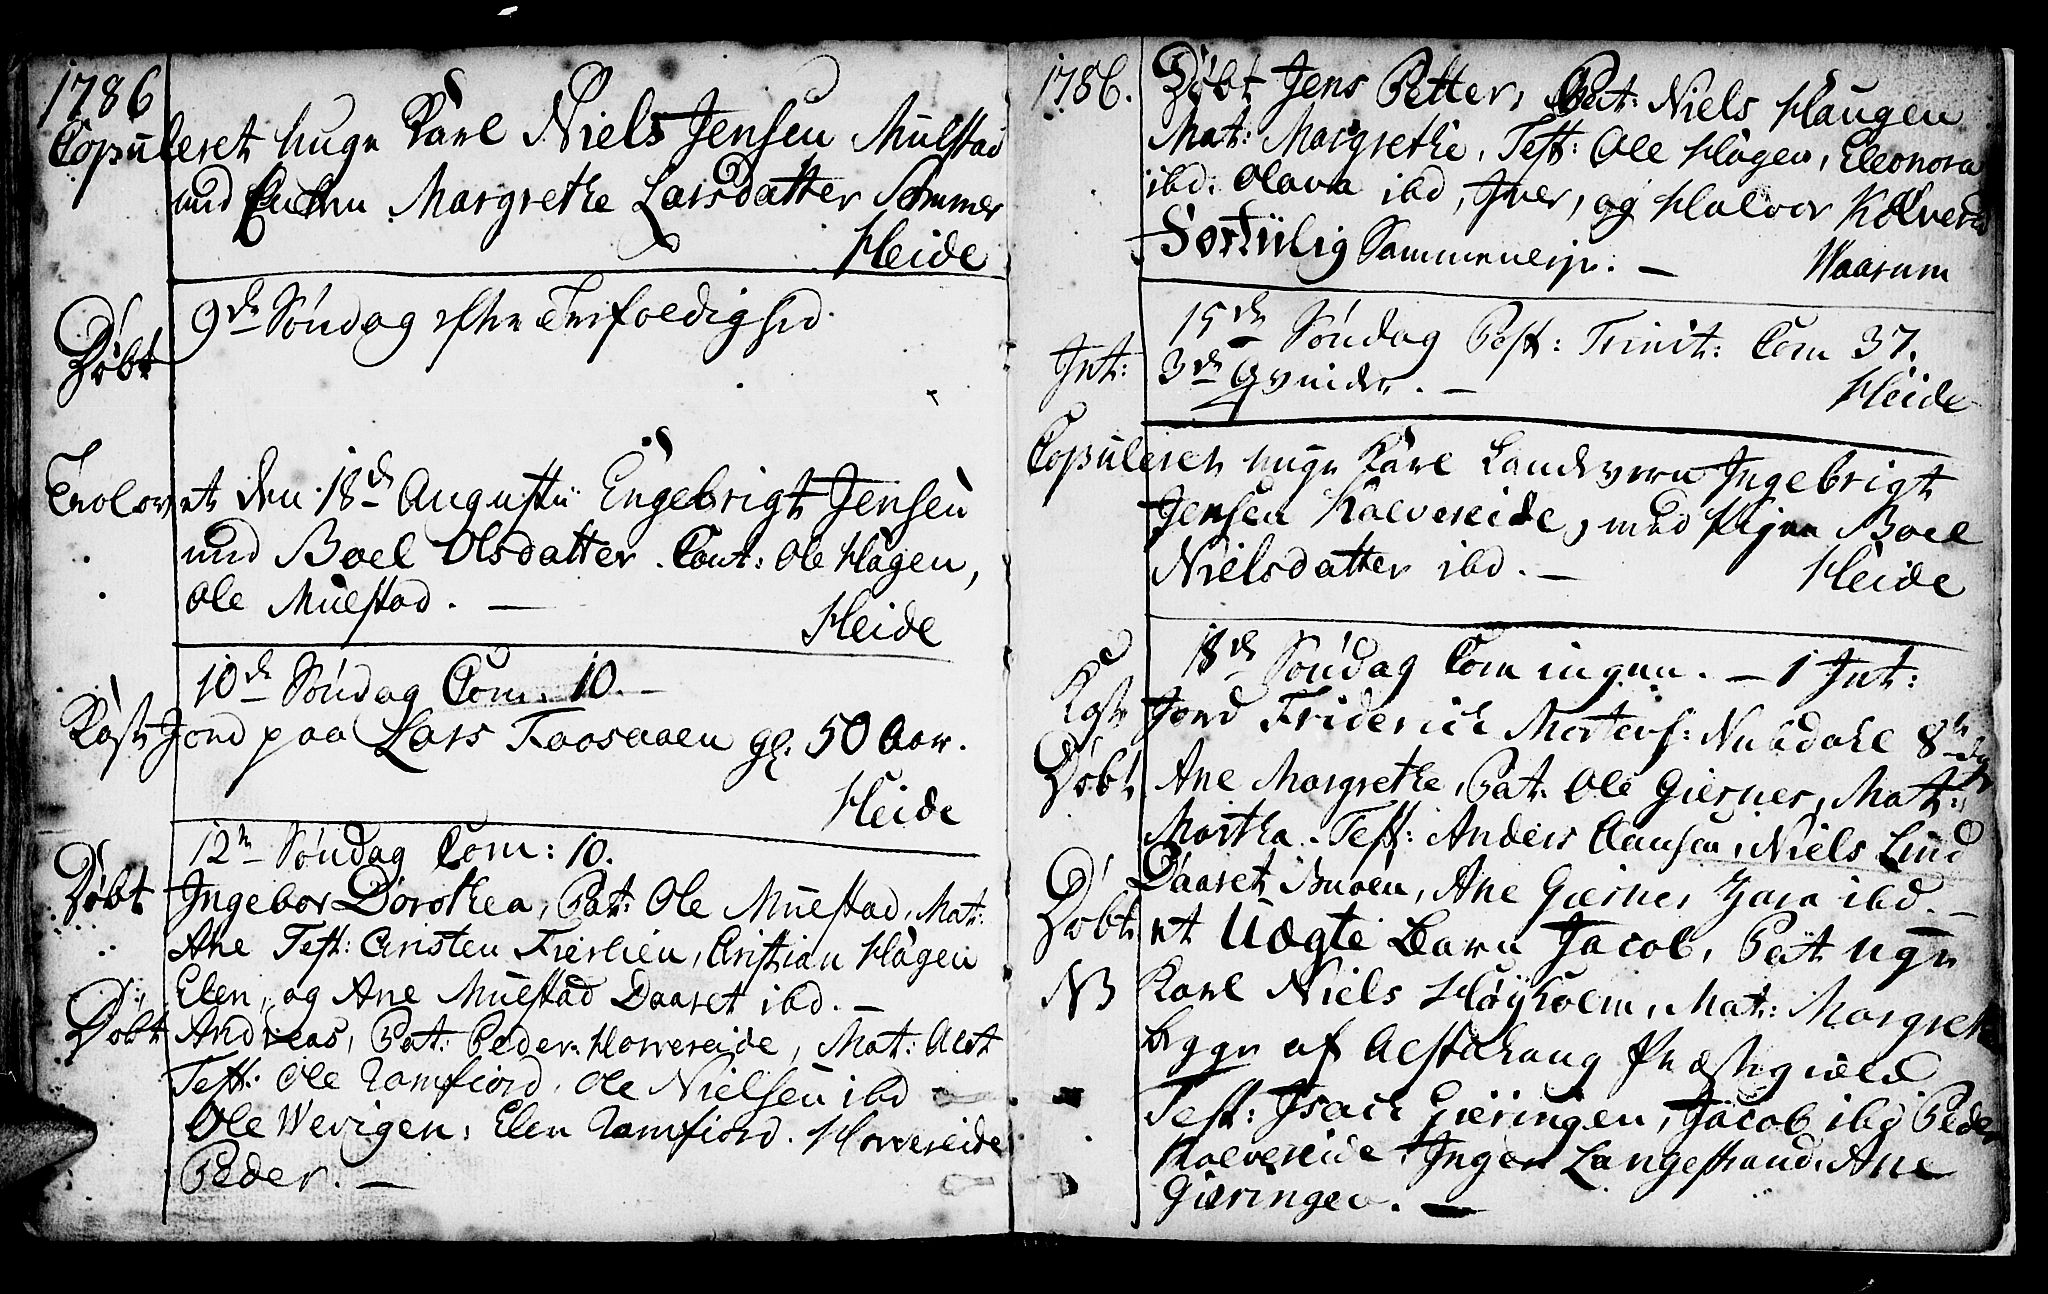 1786
Copuleret unge Karl Niels Jensen Mulstad
med Enken Margrethe Larsdatter Sommer
Heide
9de Søndag efter Trefoldighed
Døbt
Trolovet den 18de Augustii Engebrigt Jensen
med Boel Olsdatter. Cout: Ole Hagen,
Ole Mulstad. —
Heide
10de Søndag Com. 10. —
Kast Jord paa Lars Faasaaen gl. 50 Aar.
Heide
12te Søndag Com: 10.
Døbt Ingebor Dorothea, Pat: Ole Mulstad, Mat:
Ane Test: Cristen Fierlien, Cristian Hagen
Elen, og Ane Mulstad Daaret ibd. —
Døbt Andreas, Pat: Peder Horvereide, Mat: Alet
Test: Ole Ramfiord, Ole Nielsen ibd
Ole Werigen, Elen Ramfiord. Horvereide
Peder. —
1786. Døbt Jens Petter, Pat: Niels Haugen
Mat: Margrethe, Test: Ole Hagen, Eleonora
ibd. Olava ibd, Iver, og Halvor Kolvereid
Sammenleje. — Waarum
15de Søndag Post: Trinit: Com 37.
Int: 3de Qvinder. —
Heide
Copuleret unge Karl Landvern Ingebrigt
Jensen Kolvereide, med Pigen Boel
Nielsdatter ibd. —
Heide
18de Søndag Com ingen. — 1 Int:
Kast Jord Friderich Mortens: 8te dg
Døbt Ane Margrethe, Pat: Ole Giesnes, Mat:
Martha. Test: Anders Clausen, Niels Lund
Daaret Buoen, Ane Giesnes ibd. —
Døbt et Uægte Barn Jacob, Pat unge
NB Karl Niels Høyholm, Mat: Margrete
bygge af Alstahoug Præstegield
Test: Isach Gieringen, Jacob ibd Peder
Kolvereide, Inger Langestrand, Ane
Gieringen. —